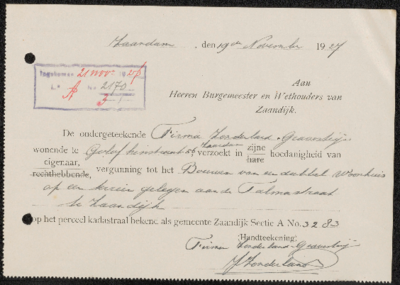 Zaandam, den 19de November 1927
Ingekomen 21 nov 1927
L.a A No. 2173
Aan
Heeren Burgemeester en Wethouders van
Zaandijk.
De ondergeteekende Firma Honderland-Gravenbeijn
wonende te Zaandam verzoekt in zijne hare hoedanigheid van
eigenaar, rechthebbende, vergunning tot het Bouwen van een dubbel Woonhuis
op een terrein gelegen aan de Talmastraat
te Zaandijk
op het perceel kadastraal bekend als gemeente Zaandijk Sectie A No. 3283
Handteekening:
Firma